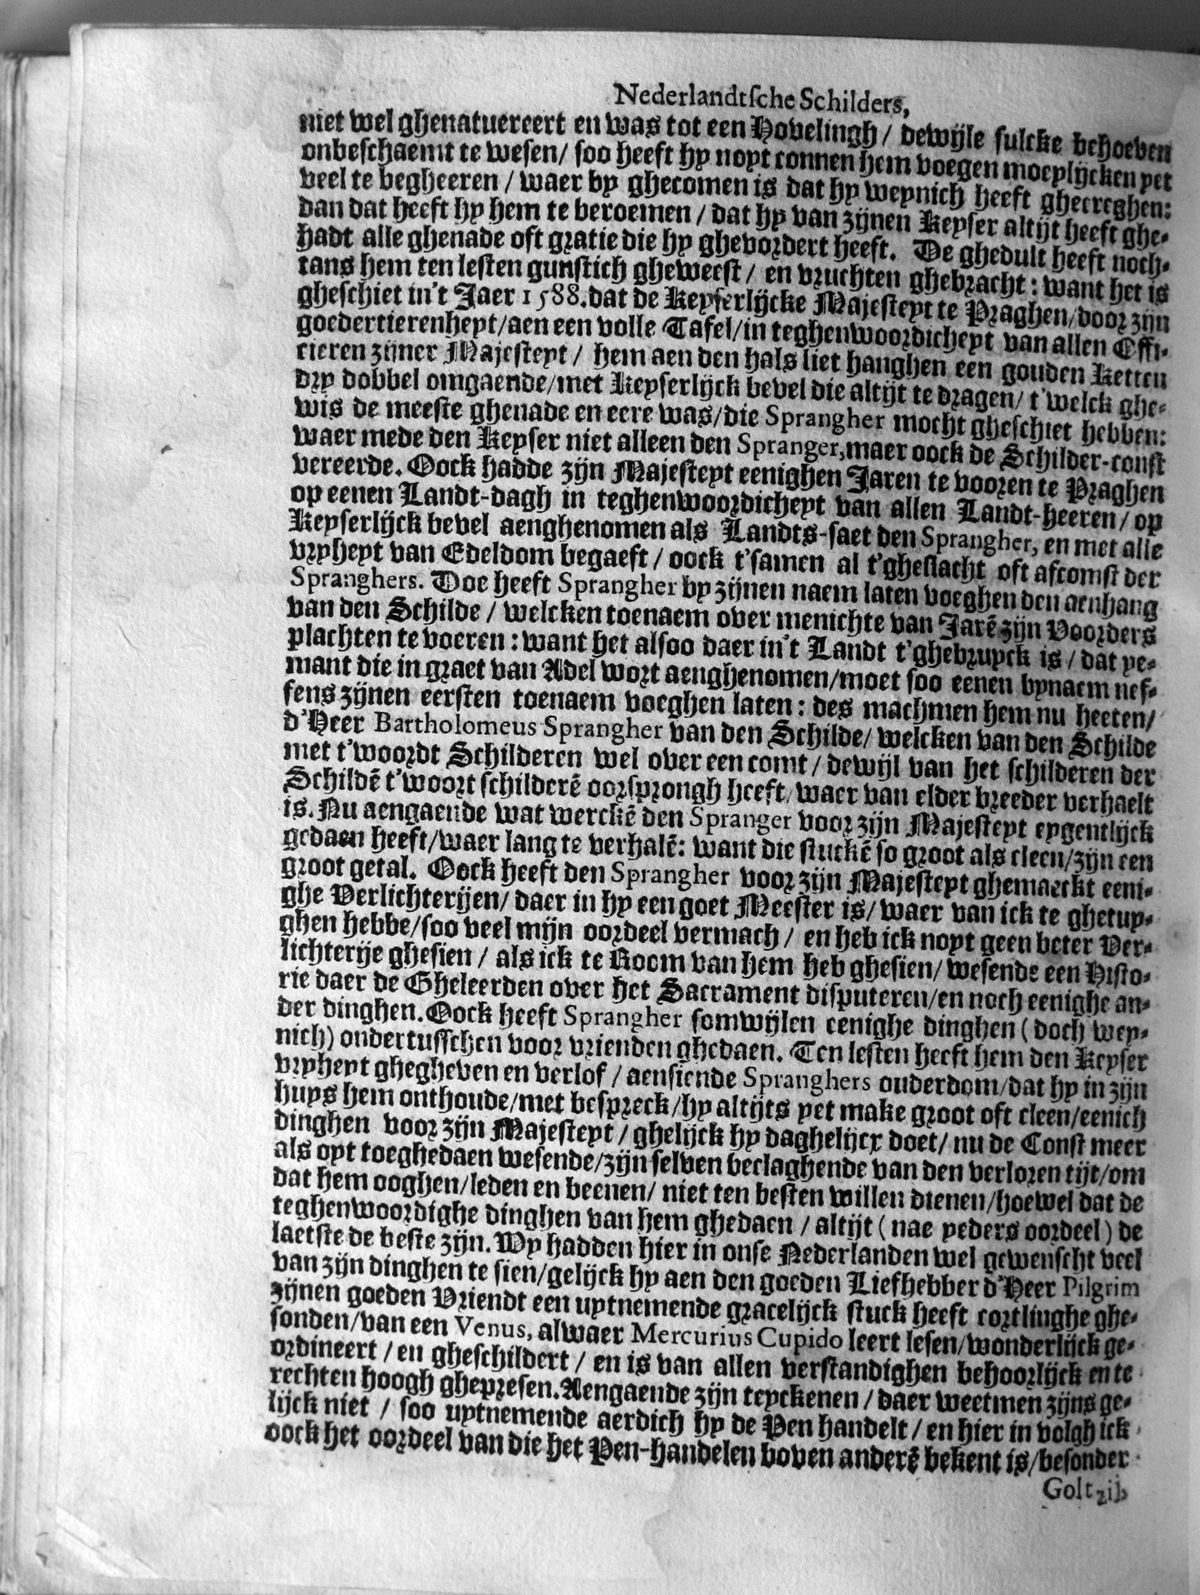 Nederlandtſche Schilders,
niet wel ghenatuereert en was tot een Hovelingh / dewijle sulcke behoeven
onbeschaemt te wesen / soo heeft hy noyt connen hem voegen moeylijcken yet
veel te begheeren / waer by ghecomen is dat hy weynich heeft ghecreghen:
dan dat heeft hy hem te beroemen / dat hy van zijnen Keyser altijt heeft ghe-
hadt alle ghenade oft gratie die hy ghevordert heeft. De ghedult heeft noch-
tans hem ten lesten gunstich gheweest / en vruchten ghebracht: want het is
gheschiet in't Jaer 1588. dat de Keyserlijcke Majesteyt te Praghen / door zijn
goedertierenheyt / aen een volle Tafel / in teghenwoordicheyt van allen Offi-
cieren zijner Majesteyt / hem aen den hals liet hanghen een gouden Ketten
dry dobbel omgaende / met Keyserlijck bevel die altijt te dragen / t'welck ghe-
wis de meeste ghenade en eere was / die Sprangher mocht gheschiet hebben:
waer mede den Keyser niet alleen den Spranger, maer oock de Schilder-const
vereerde. Oock hadde zijn Majesteyt eenighen Jaren te vooren te Praghen
op eenen Landt-dagh in teghenwoordicheyt van allen Landt-heeren / op
Keyserlijck bevel aenghenomen als Landts-saet den Sprangher, en met alle
vryheyt van Edeldom begaeft / oock t'samen al t'gheslacht oft afcomst der
Spranghers. Doe heeft Sprangher by zijnen naem laten voeghen den aenhang
van den Schilde / welcken toenaem over menichte van Jarẽ zijn Voorders
plachten te voeren: want het alsoo daer in't Landt t'ghebruyck is / dat ye-
mant die in graet van Adel wort aenghenomen / moet soo eenen bynaem nef-
fens zijnen eersten toenaem voeghen laten: des machmen hem nu heeten /
d'Heer Bartholomeus Sprangher van den Schilde / welcken van den Schilde
met t'woordt Schilderen wel over een comt / dewijl van het schilderen der
Schildẽ t'woort schilderẽ oorsprongh heeft / waer van elder breeder verhaelt
is. Nu aengaende wat werckẽ den Spranger voor zijn Majesteyt eygentlijck
gedaen heeft / waer lang te verhalẽ: want die stuckẽ so groot als cleen / zijn een
groot getal. Oock heeft den Sprangher voor zijn Majesteyt ghemaeckt eeni-
ghe Verlichterijen / daer in hy een goet Meester is / waer van ick te ghetuy-
ghen hebbe / soo veel mijn oordeel vermach / en heb ick noyt geen beter Ver-
lichterije ghesien / als ick te Room van hem heb ghesien / wesende een Histo-
rie daer de Gheleerden over het Sacrament disputeren / en noch eenighe an-
der dinghen. Oock heeft Sprangher somwijlen eenighe dinghen (doch wey-
nich) ondertusschen voor vrienden ghedaen. Ten lesten heeft hem den Keyser
vryheyt ghegheven en verlof / aensiende Spranghers ouderdom / dat hy in zijn
huys hem onthoude / met bespreck / hy altijts yet make groot oft cleen / eenich
dinghen voor zijn Majesteyt / ghelijck hy daghelijcx doet / nu de Const meer
als oyt toeghedaen wesende / zijn selven beclaghende van den verloren tijt / om
dat hem ooghen / leden en beenen / niet ten besten willen dienen / hoewel dat de
teghenwoordighe dinghen van hem ghedaen / altijt (nae yeders oordeel) de
laetste de beste zijn. Wy hadden hier in onse Nederlanden wel gewenscht veel
van zijn dinghen te sien / gelijck hy aen den goeden Liefhebber d'Heer Pilgrim
zijnen goeden Vriendt een uytnemende gracelijck stuck heeft cortlinghe ghe-
sonden / van een Venus, alwaer Mercurius Cupido leert lesen / wonderlijck ge-
ordineert / en gheschildert / en is van allen verstandighen behoorlijck en te
rechten hoogh ghepresen. Aengaende zijn teyckenen / daer weetmen zijns ge-
lijck niet / soo uytnemende aerdich hy de Pen handelt / en hier in volgh ick
oock het oordeel van die het Pen-handelen boven anderẽ bekent is / besonder
Goltzij,